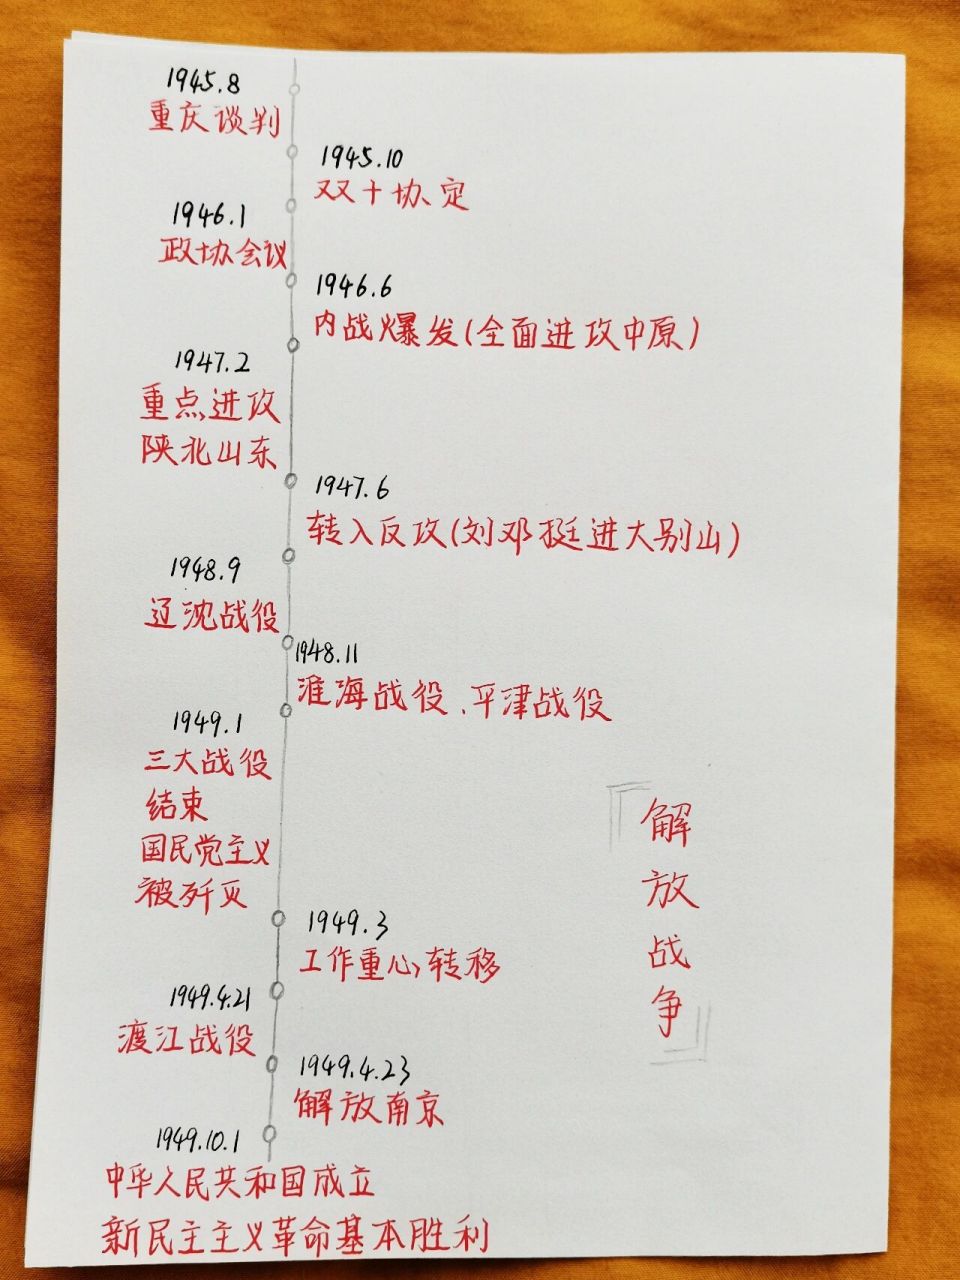 1945.8
重庆谈判
1945.10
双十协定
1946.1
政协会议
1946.6
内战爆发(全面进攻中原)
1947.2
重点进攻
陕北山东
1947.6
转入反攻(刘邓挺进大别山)
1948.9
辽沈战役
1948.11
淮海战役、平津战役
1949.1
三大战役
结束
国民党主义
被歼灭
1949.3
工作重心转移
1949.4.21
渡江战役
1949.4.23
解放南京
1949.10.1
中华人民共和国成立
新民主主义革命基本胜利
『解放战争』